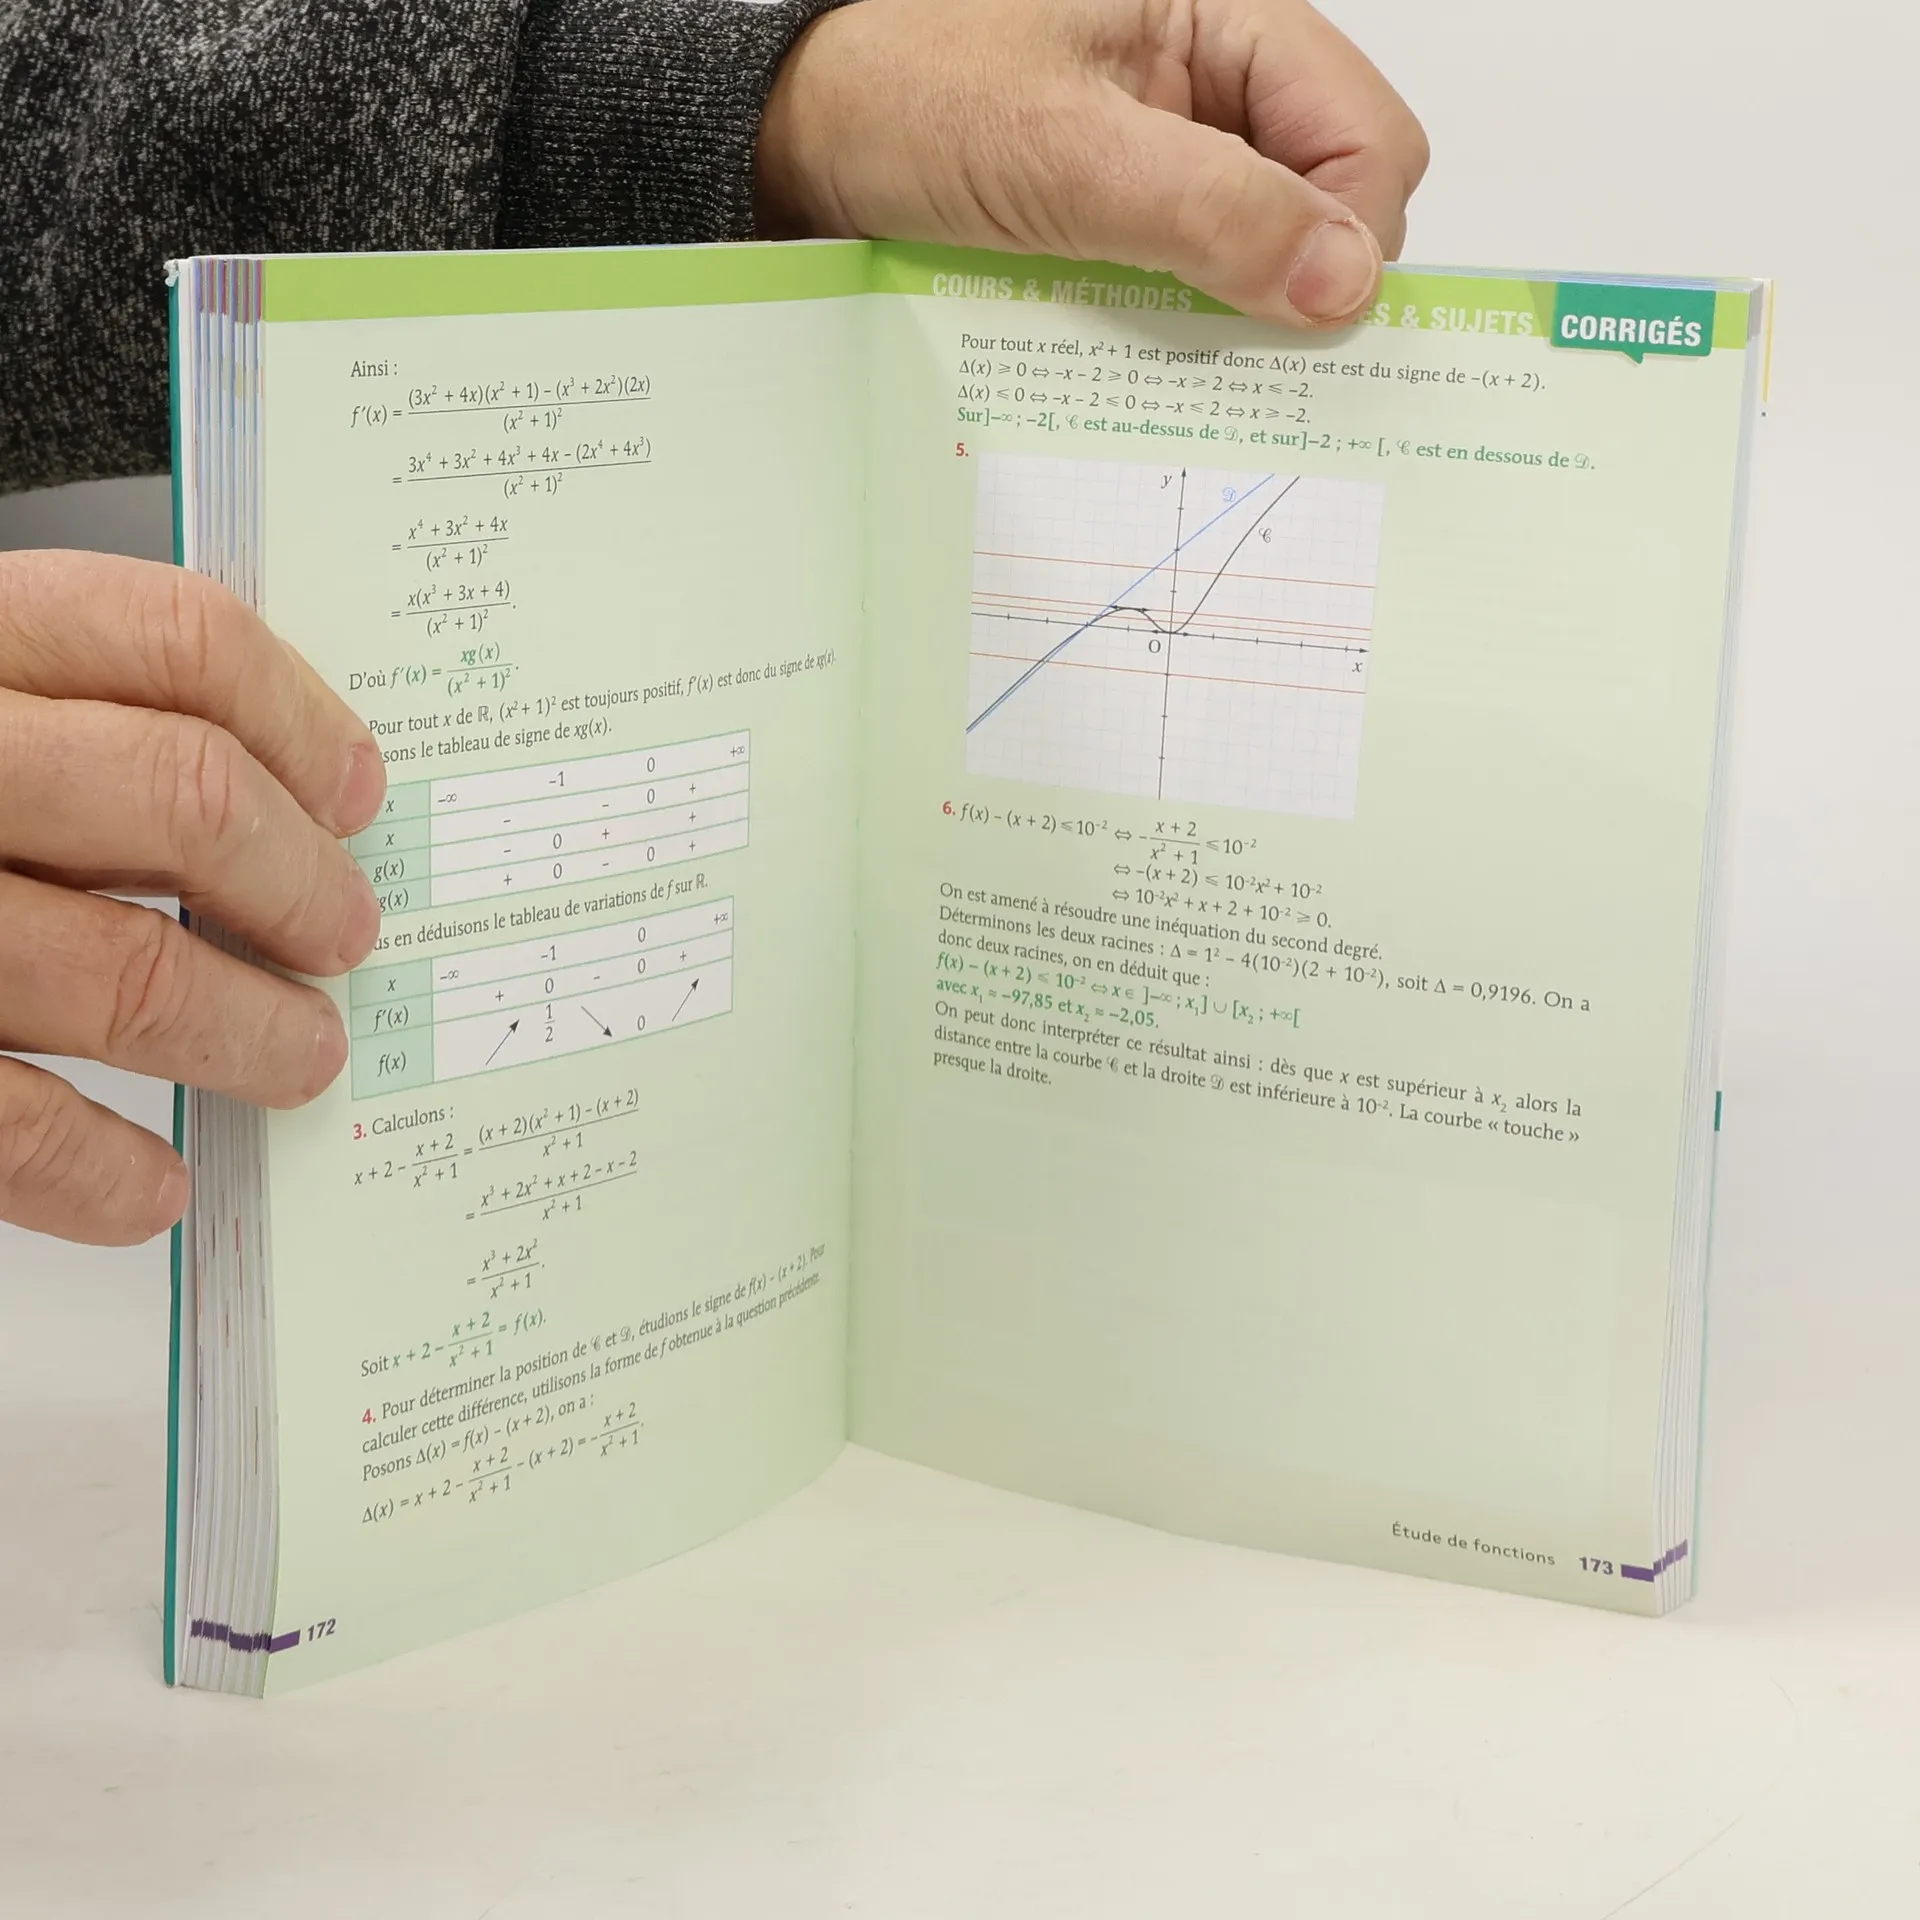 Ainsi :
f'(x) = ((3x² + 4x)(x² + 1) – (x³ + 2x²)(2x)) / (x² + 1)²
= (3x⁴ + 3x² + 4x³ + 4x – (2x⁴ + 4x³)) / (x² + 1)²
= (x⁴ + 3x² + 4x) / (x² + 1)²
= x(x³ + 3x + 4) / (x² + 1)².
D'où f'(x) = xg(x) / (x² + 1)².
Pour tout x de ℝ, (x² + 1)² est toujours positif, f'(x) est donc du signe de xg(x).
le tableau de signe de xg(x).
x –∞ –1 0 +∞
x – – 0 +
g(x) – 0 + +
g(x) + 0 – 0 +
en déduisons le tableau de variations de f sur ℝ.
x –∞ –1 0 +∞
f'(x) + 0 – 0 +
f(x) 1/2 0
3. Calculons :
x + 2 – (x + 2)/(x² + 1) = ((x + 2)(x² + 1) – (x + 2)) / (x² + 1)
= (x³ + 2x² + x + 2 – x – 2) / (x² + 1)
= (x³ + 2x²) / (x² + 1).
Soit x + 2 – (x + 2)/(x² + 1) = f(x).
4. Pour déterminer la position de 𝒞 et 𝒟, étudions le signe de f(x) – (x + 2). Pour
calculer cette différence, utilisons la forme de f obtenue à la question précédente.
Posons Δ(x) = f(x) – (x + 2), on a :
Δ(x) = x + 2 – (x + 2)/(x² + 1) – (x + 2) = – (x + 2)/(x² + 1).
172
COURS & MÉTHODES
& SUJETS
CORRIGÉS
Pour tout x réel, x² + 1 est positif donc Δ(x) est est du signe de –(x + 2).
Δ(x) ⩾ 0 ⇔ –x – 2 ⩾ 0 ⇔ –x ⩾ 2 ⇔ x ⩽ –2.
Δ(x) ⩽ 0 ⇔ –x – 2 ⩽ 0 ⇔ –x ⩽ 2 ⇔ x ⩾ –2.
Sur ]–∞ ; –2[, 𝒞 est au-dessus de 𝒟, et sur ]–2 ; +∞ [, 𝒞 est en dessous de 𝒟.
5.
y
𝒟
𝒞
O
x
6. f(x) – (x + 2) ⩽ 10⁻² ⇔ – (x + 2)/(x² + 1) ⩽ 10⁻²
⇔ –(x + 2) ⩽ 10⁻²x² + 10⁻²
⇔ 10⁻²x² + x + 2 + 10⁻² ⩾ 0.
On est amené à résoudre une inéquation du second degré.
Déterminons les deux racines : Δ = 1² – 4(10⁻²)(2 + 10⁻²), soit Δ = 0,9196. On a
donc deux racines, on en déduit que :
f(x) – (x + 2) ⩽ 10⁻² ⇔ x ∈ ]–∞ ; x₁] ∪ [x₂ ; +∞[
avec x₁ ≈ –97,85 et x₂ ≈ –2,05.
On peut donc interpréter ce résultat ainsi : dès que x est supérieur à x₂ alors la
distance entre la courbe 𝒞 et la droite 𝒟 est inférieure à 10⁻². La courbe « touche »
presque la droite.
Étude de fonctions 173